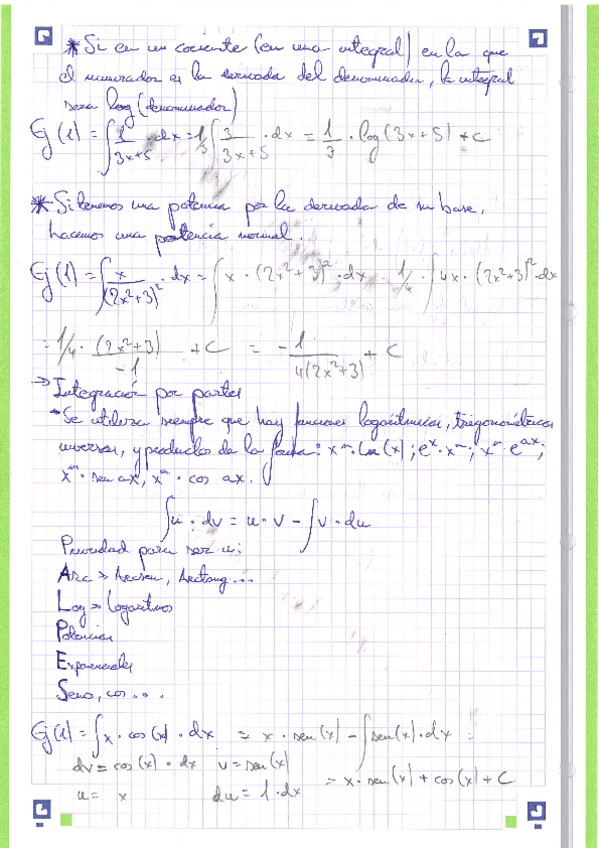 * Si en un cociente (en una integral) en la que
el numerador es la derivada del denominador, la integral
sera log (denominador)
Ej (1) = ∫ 1/(3x+5) · dx = 1/3 ∫ 3/(3x+5) · dx = 1/3 · log (3x+5) + C
* Si tenemos una potencia por la derivada de su base,
hacemos una potencia normal.
Ej (1) = ∫ x/(2x²+3)² · dx = ∫ x · (2x²+3)² · dx 1/4 · ∫ 4x · (2x²+3)⁻² · dx
= 1/4 · (2x²+3)/-1 + C = - 1/(4(2x²+3)) + C
→ Integración por partes
* Se utiliza siempre que hay funciones logarítmicas, trigonométricas
inversas, y productos de la forma: xᵐ · Ln (x) ; eˣ · xᵐ ; xᵐ · eᵃˣ ;
xᵐ · sen ax, xᵐ · cos ax.
∫ u · dv = u · v - ∫ v · du
Prioridad para ser u:
Arc » Arcsen, Arctang ...
Log » Logaritmos
Potencias
Exponenciales
Seno, cos ...
Ej (1) = ∫ x · cos (x) · dx = x · sen (x) - ∫ sen (x) · dx =
dv = cos (x) · dx v = sen (x)
= x · sen (x) + cos (x) + C
u = x du = 1 · dx